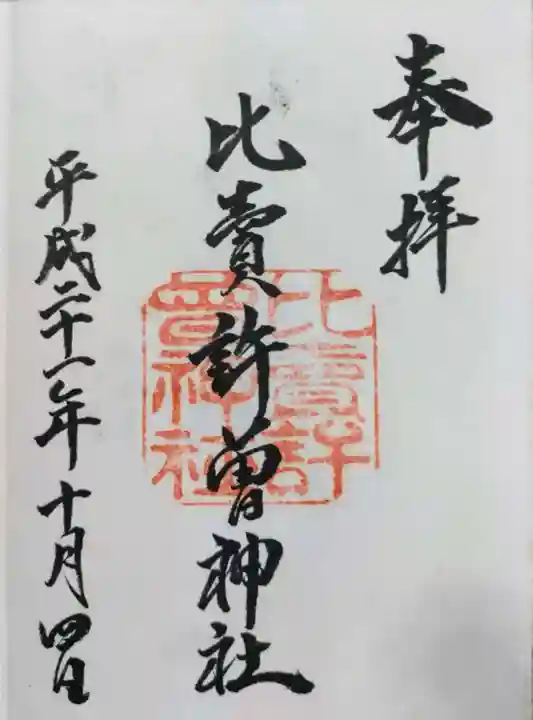 奉拝
比賣許曽神社
比賣許曽神社
平成二十一年十月四日